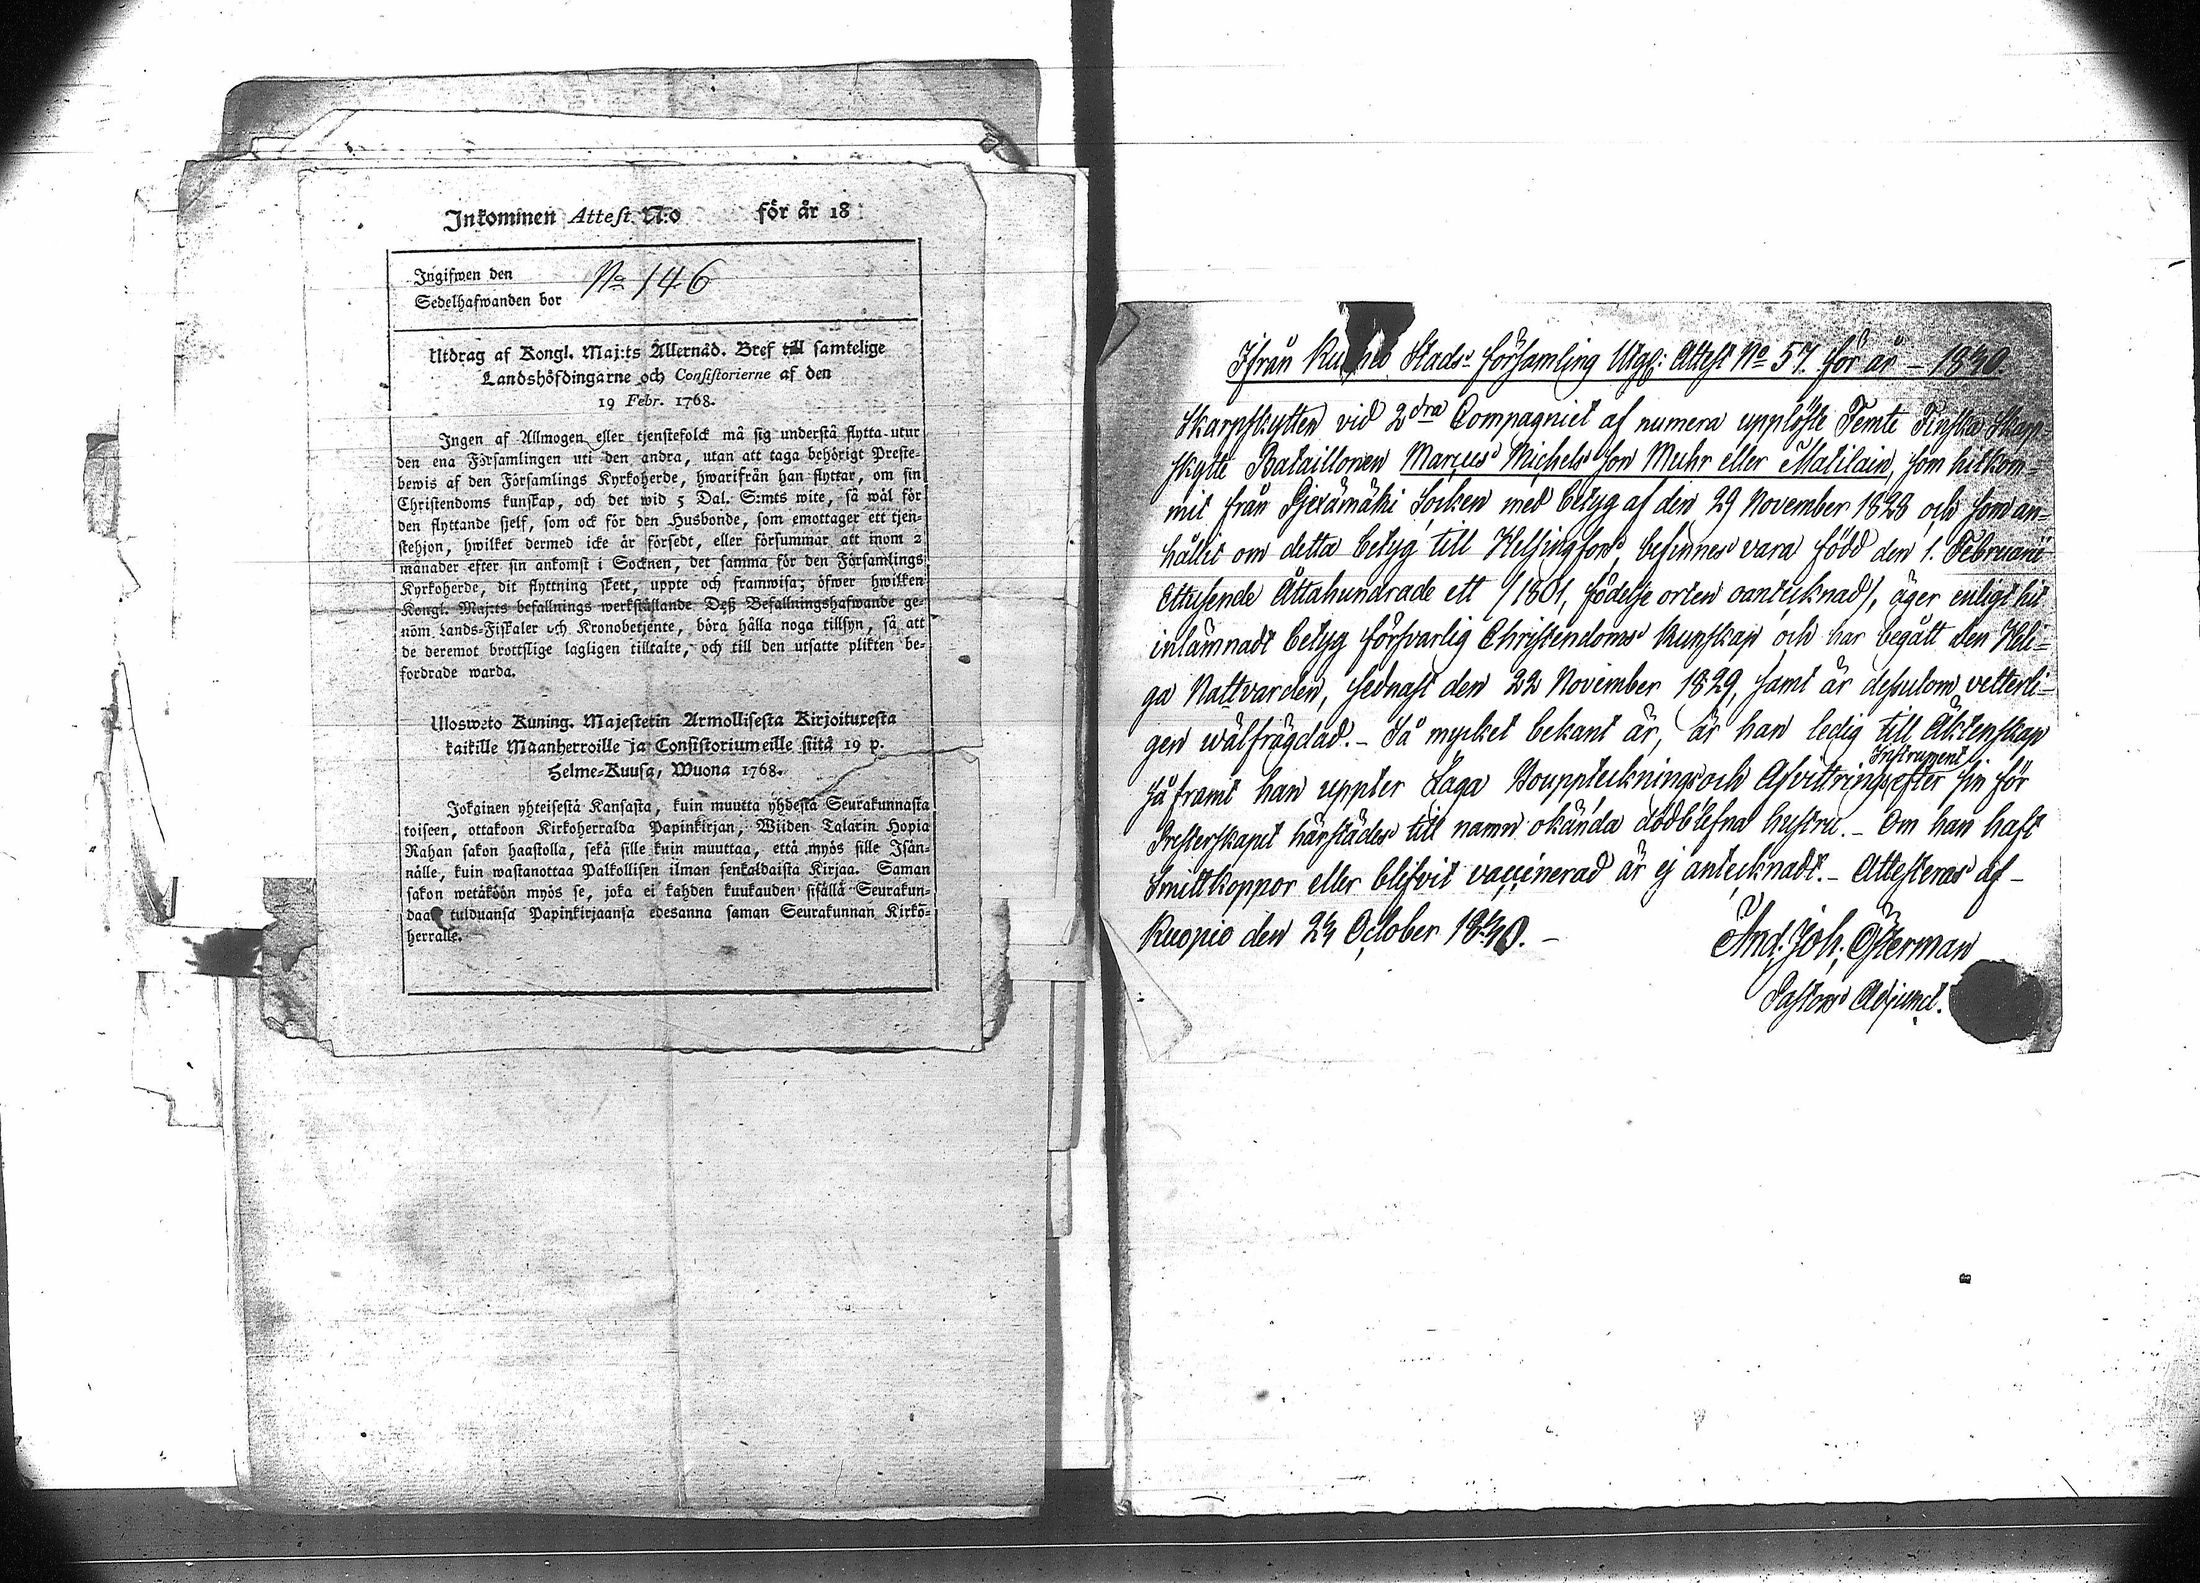 Inkommen Attest. N:o för år 18
Ingifwen den
Sedelhafwanden bor
No 146
Utdrag af Kongl. Maj:ts Allernåd. Bref till samtelige
Landshöfdingarne och Consistorierne af den
19 Febr. 1768.
Ingen af Allmogen eller tjenstefolck må sig understå flytta utur
den ena Församlingen uti den andra, utan att taga behörigt Preste-
bewis af den Församlings Kyrkoherde, hwarifrån han flyttar, om sin
Christendoms kunskap, och det wid 5 Dal. S:mts wite, så wäl för
den flyttande sjelf, som ock för den Husbonde, som emottager ett tjen-
stehjon, hwilket dermed icke är försedt, eller försummar att inom 2
månader efter sin ankomst i Socknen, det samma för den Församlings
Kyrkoherde, dit flyttning skett, uppte och framwisa; öfwer hwilken
Kongl. Maj:ts befallnings werkställande Deß Befallningshafwande ge-
nom Lands-Fiskaler och Kronobetjente, böra hålla noga tillsyn, så att
de deremot brottslige lagligen tilltalte, och till den utsatte plikten be-
fordrade warda.
Ulosweto Kuning. Majestetin Armollisesta Kirjoituxesta
kaikille Maanherroille ja Consistoriumeille siitä 19 p.
Helme-Kuusa, Wuona 1768.
Jokainen yhteisestä Kansasta, kuin muutta yhdestä Seurakunnasta
toiseen, ottakoon Kirkoherralda Papinkirjan, Wiiden Talarin Hopia
Rahan sakon haastolla, sekä sille kuin muuttaa, että myös sille Isän-
nälle, kuin wastanottaa Palkollisen ilman senkaldaista Kirjaa. Saman
sakon wetäköön myös se, joka ei kahden kuukauden sisällä Seurakun-
daan tulduansa Papinkirjaansa edesanna saman Seurakunnan Kirko-
herralle.
Ifrån Kuopio Stads Församling Utgf: Attest No 57. för år – 1830.
Skarpskytten vid 2dra Compagniet af numera upplöste Femte Finska Skarp-
skytte Bataillonen Marcus Michels son Muhr eller Matilain, som hitkom-
mit från Pjexämäki Socken med betyg af den 29 November 1828 och som an-
hållit om detta betyg till Helsingfors, befinnes vara född den 1. Februarii
Ettusende Åttahundrade ett /1801, födelse orten oantecknad/, äger enligt hit
inlämnadt betyg försvarlig Christendoms kunskap och har begått den Heli-
ga Nattvarden, sednast den 22 November 1829, samt är dessutom vetterli-
gen wälfrägdad. – Så mycket bekant är, är han ledig till Äktenskap
Instrument
så framt han uppter Laga Bouppteckning och Afvittrings efter sin för
Presterskapet härstädes till namn okända dödblefna hustru. – Om han haft
Smittkoppor eller blifvit vaccinerad är ej antecknadt. – Attesteras af –
Kuopio den 24 October 1830. –
And: Joh: Österman
Pastors Adjunct.